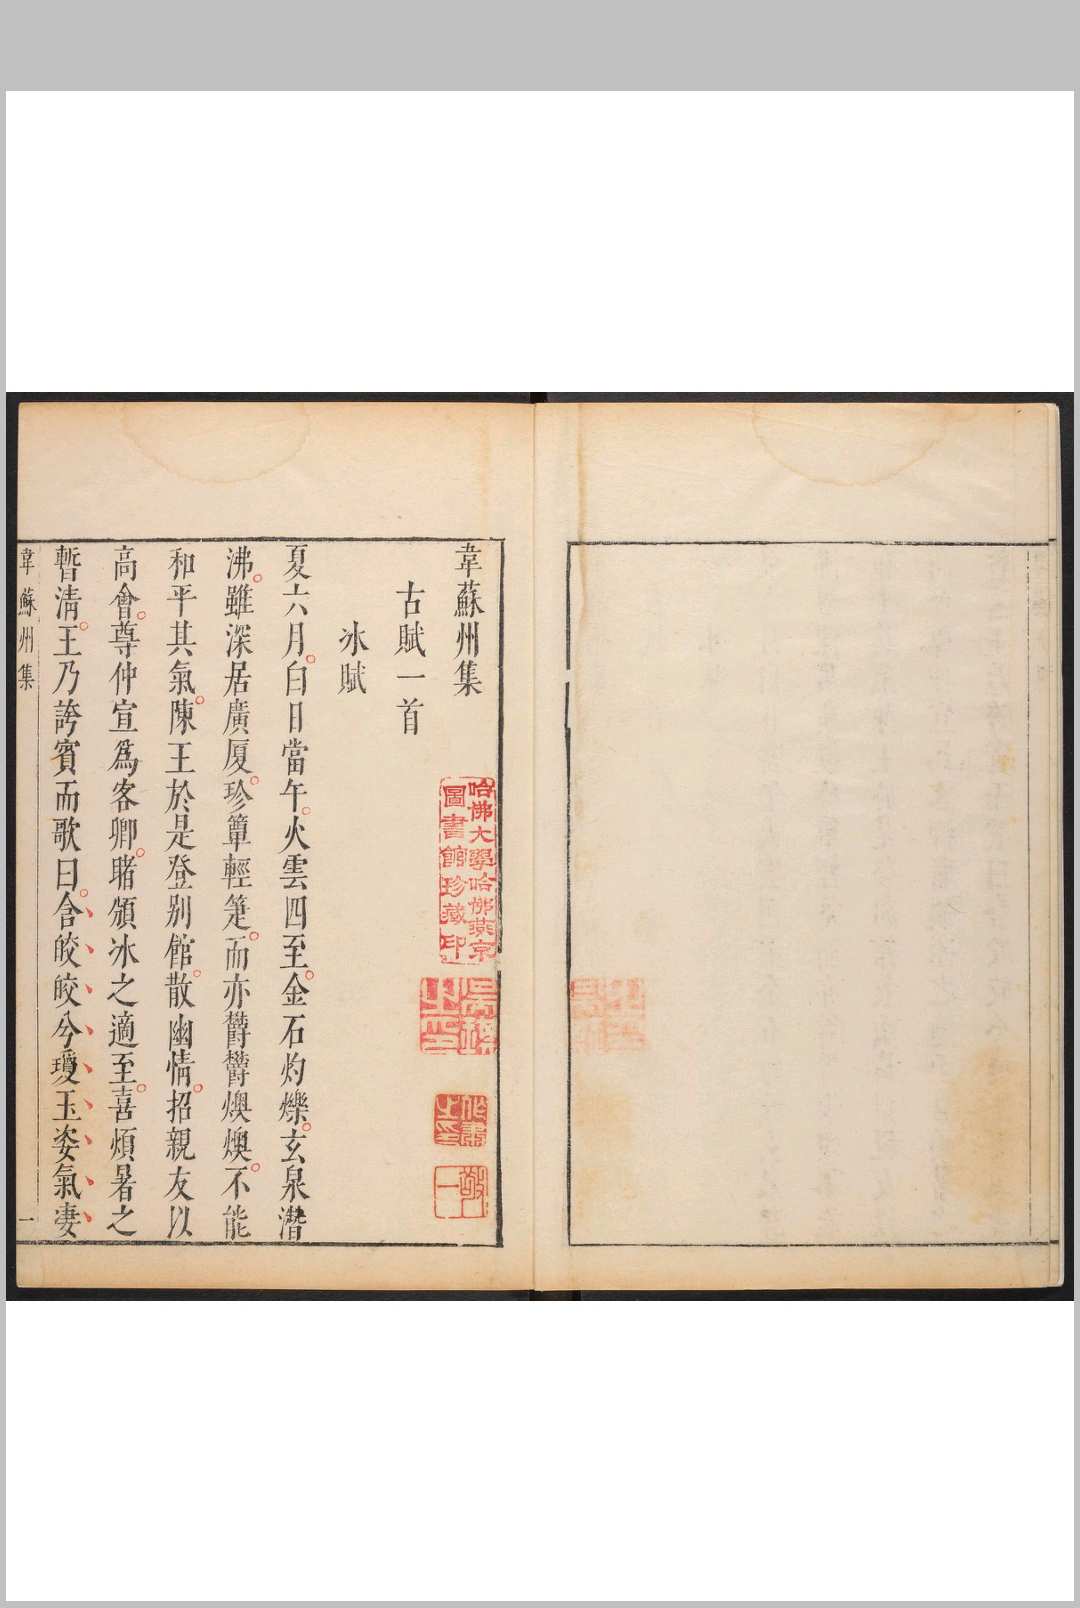 韋蘇州集
古賦一首
冰賦
夏六月。白日當午。火雲四至。金石灼爍。玄泉潛
沸。雖深居廣厦。珍簟輕箑。而亦欝欝燠燠。不能
和平其氣。陳王於是登别館。散幽情。招親友以
高會。尊仲宣爲客卿。睹頒冰之適至。喜煩暑之
暫淸。王乃誇賓而歌曰。含皎皎兮瓊玉姿氣凄
韋蘇州集
一
哈佛大學哈佛燕京
圖書館珍藏印